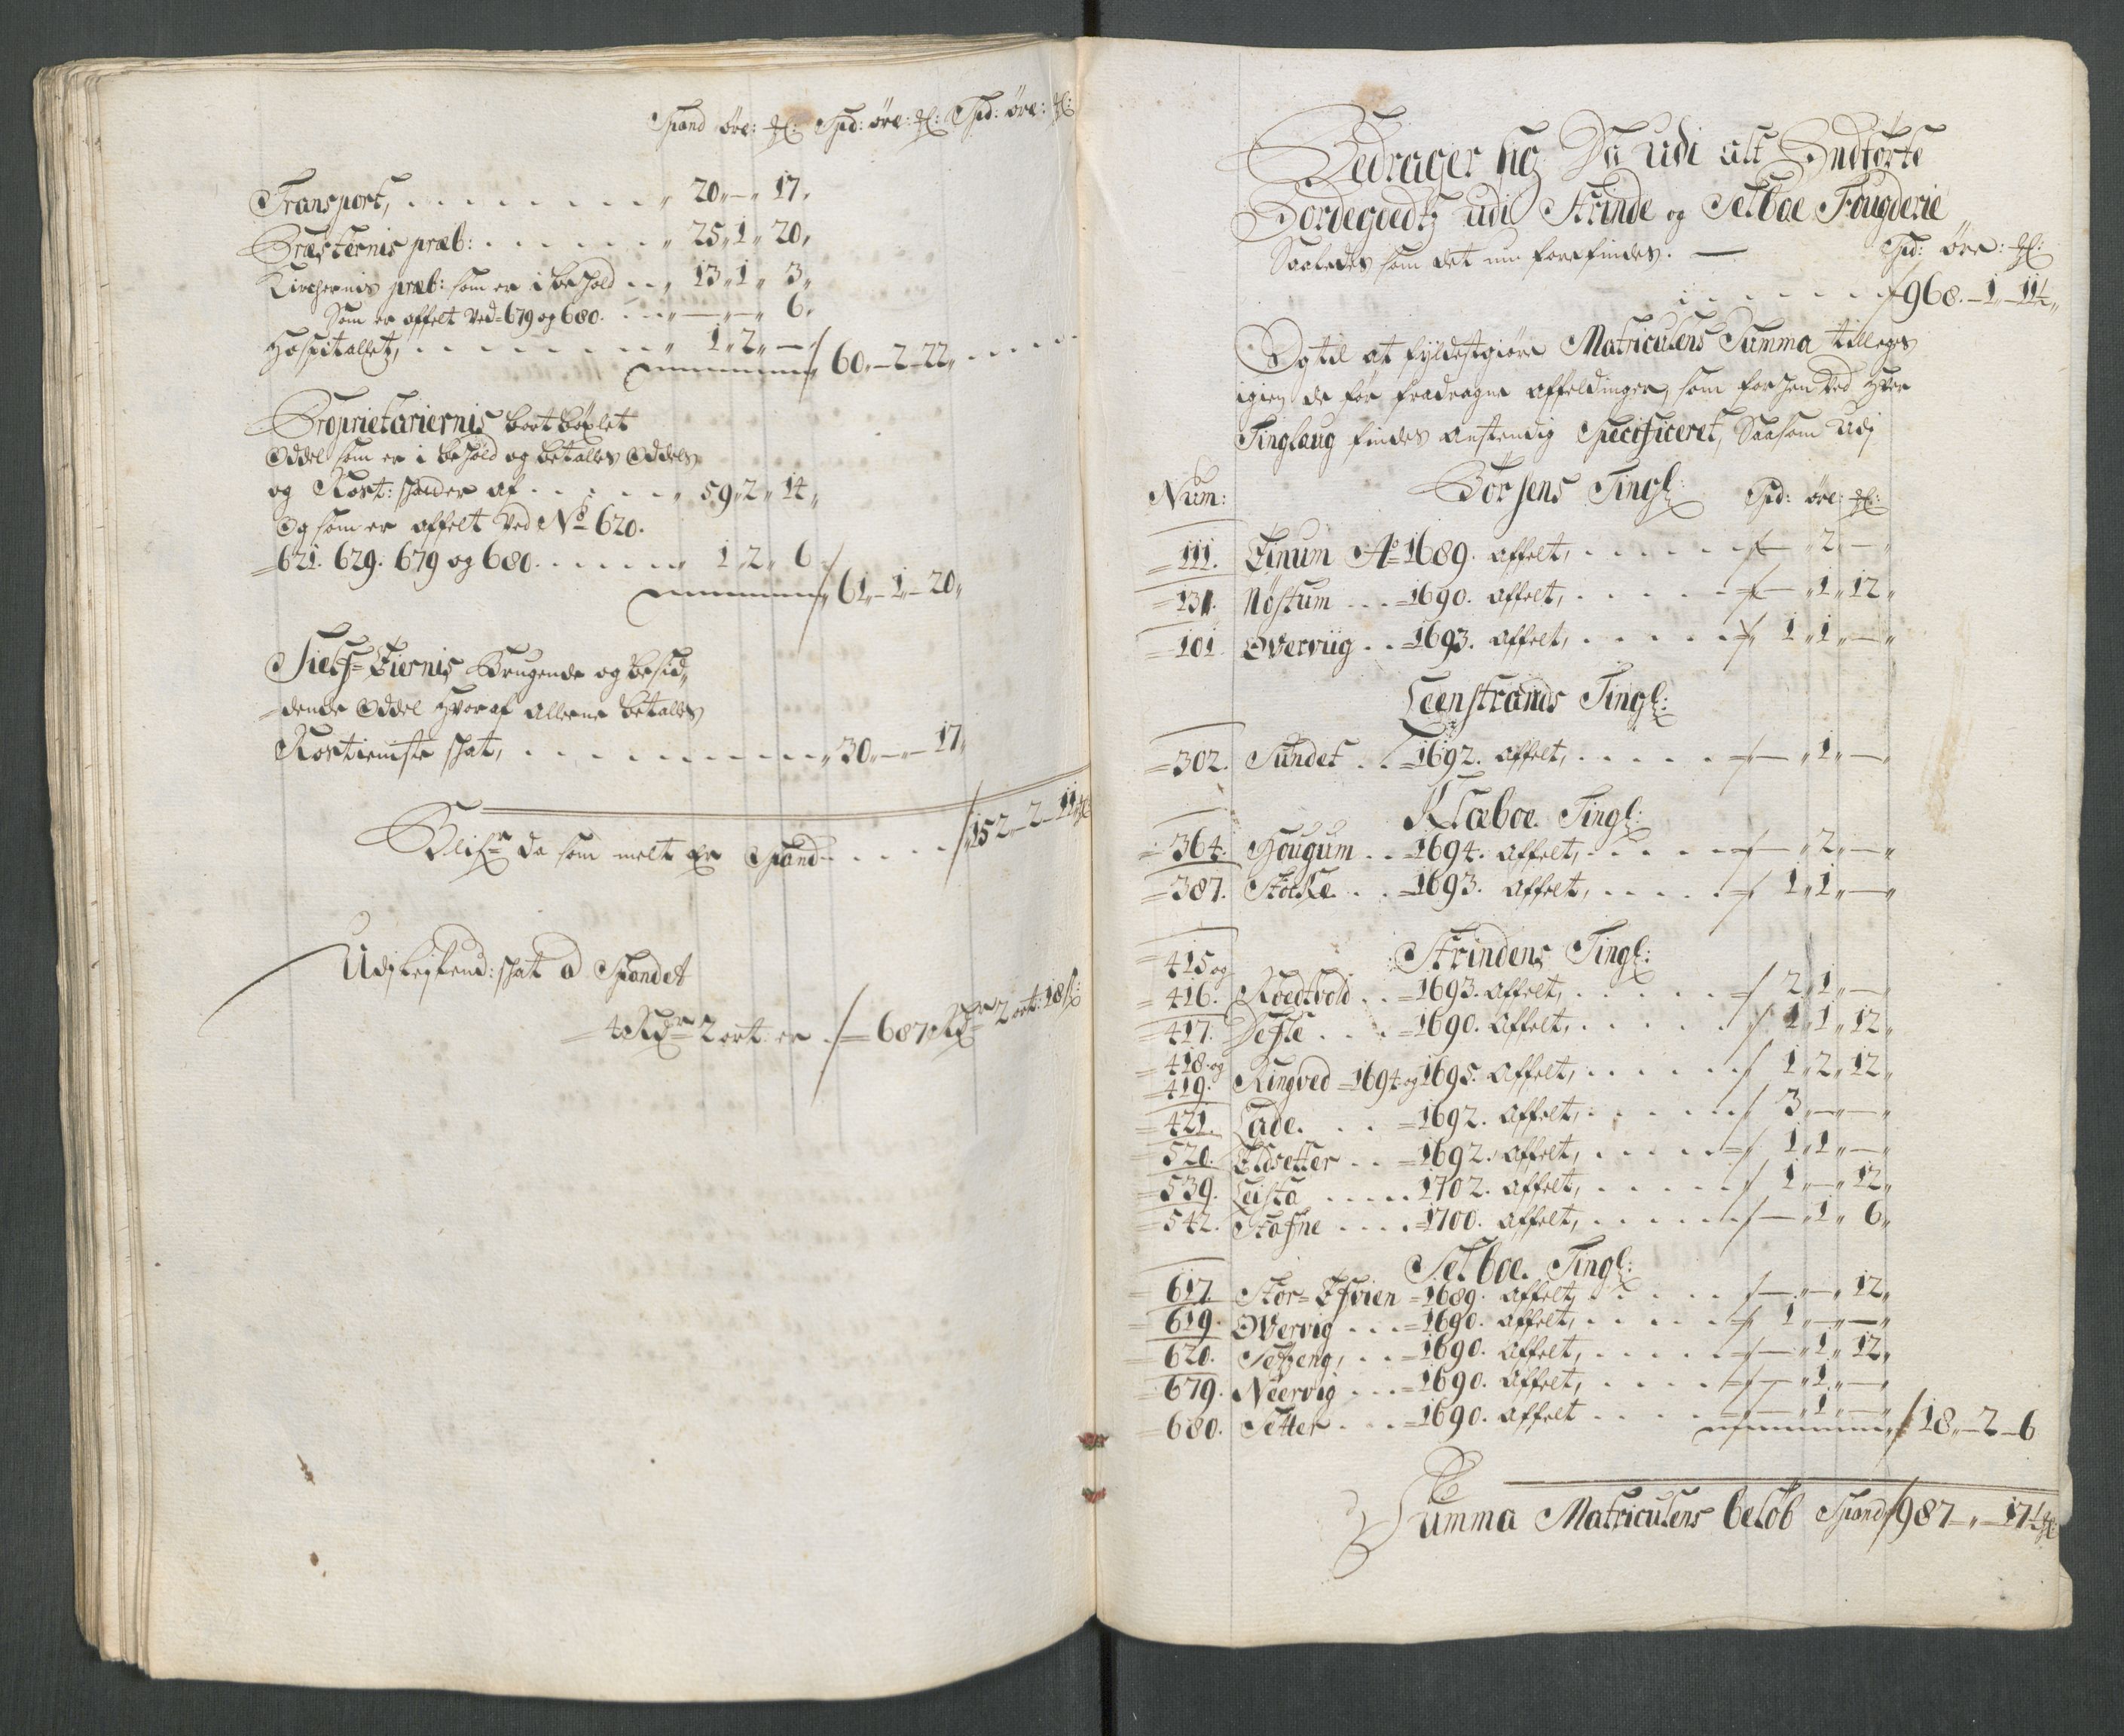 Spand øre: ℔: Spd: øre: ℔: Spd: øre: ℔:
Transport, . . . . . . . . „ 20„ — „ 17„
Præsternis præb: . . . . . . „ 25„ 1„ 20„
Kirchernis præb: som er i behold . . „ 13„ 1„ 3„
Som er affelt Ved = 679 og 680. . . . „ — „ — „ 6„
Hospitallet, . . . . . . . . „ 1„ 2„ —
/ 60„ — 2 — 22„
Proprietariernis bort böxlet
Oddel som er i behold og betaller Oddels
og Rost: schatter af . . . . . . „ 59„ 2„ 14„
Og som er affelt Ved No 620.
= 621. 629. 679 og 680. . . . . . . „ 1„ 2„ 6
/ 61„ — 1„ — 20„
Sielf = Eiernis Brugende og besid„
= dende Oddel hvoraf alleene betalles
Rostieniste schat, . . . . . . . . . . „ 30„ — „ — 17„
Blifr da som melt er Spand . . . . . / 152 — 2 — 11 ℔
Udj Leylend: schat a Spandet
= 4 Rdr = 2 ort: er . / = 687 Rdr 2 ort: 18 ß:
Bedrager sig Da udi alt Indförte
Jordegoedtz udi Strinde og Selboe Fougderie
Saaledes som det nu forefindes. — Spd: öre: ℔:
. . . . . . . / 968. — 1 — 11½„
Og til at fyldestgiöre Matriculens Summa tilleges
igien de før fradragne affeldinger, som forhen Ved hver
Tinglaug findes anstendig Specificeret, Saasom Udj
Num: Börsens Tingl: Spd: öre: ℔:
= 111. Einum Ao 1689. affelt, . . . . . . — „ 2„ — „
= 131. Nöstum . . . = 1690. affelt, . . . . . — „ 1„ 12„
= 101. Overviig . . = 1693. affelt, . . . . . 1„ 1„ — „
Leenstrands Tingl:
= 302. Sundet . . = 1692. affelt, . . . . . — „ 1„ — „
Klæboe Tingl:
= 364. Hougum . . = 1694. affelt, . . . . . — „ 2„ — „
= 387. Stocke . . = 1693. affelt, . . . . . 1„ 1„ — „
Strindens Tingl:
= 415 og
= 416. Roedtvold . . = 1693. affelt, . . . . . 2„ 1„ — „
= 417. Defle . . . = 1690. affelt, . . . . . 1„ 1„ 12„
= 418 og
= 419. Ringved = 1694 og 1695. affelt, . . . . . 1„ 2„ 12„
= 421. Lade. . . . = 1692. affelt, . . . . . 3„ — „ — „
= 520. Eldsetter . . = 1692. affelt, . . . . . 1„ 1„ — „
= 539. Leista . . . . . 1702. affelt, . . . . . 1„ — „ 12„
= 542. Stafne . . . . = 1700. affelt, . . . . . — „ 1„ 6„
Selboe Tingl:
= 617. Stor = Efvien = 1689. affelt, . . . . . — „ — „ 12„
= 619. Overvig . . . = 1690. affelt, . . . . . 1„ — „ — „
= 620. Setzeng, . . = 1690. affelt, . . . . . — „ 1„ 12„
= 679. Neervig . . . = 1690. affelt, . . . . . — „ 1„ — „
680. Setter . . . = 1690. affelt . . . . . — „ 1„ — „
/ 18„ — 2 — 6
Summa Matriculens belöb Spand / 987 — „ — 17½ ℔